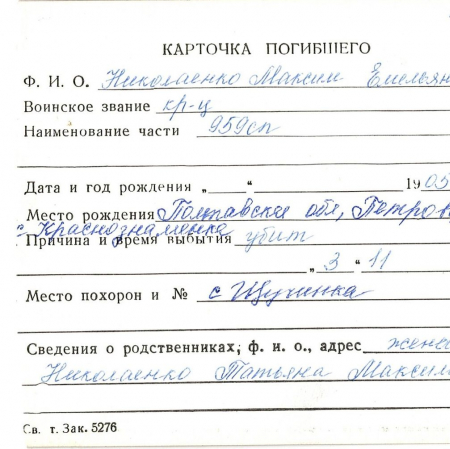 КАРТОЧКА ПОГИБШЕГО
Ф. И. О. Николаенко Максим Емельян
Воинское звание кр-ц
Наименование части 959сп
Дата и год рождения „ “ 1905
Место рождения Полтавская обл, Петров
с Краснознаменка
Причина и время выбытия убит
„ 3 “ 11
Место похорон и № с Щучинка
Сведения о родственниках, ф. и. о., адрес жена
Николаенко Татьяна Максим
Св. т. Зак. 5276